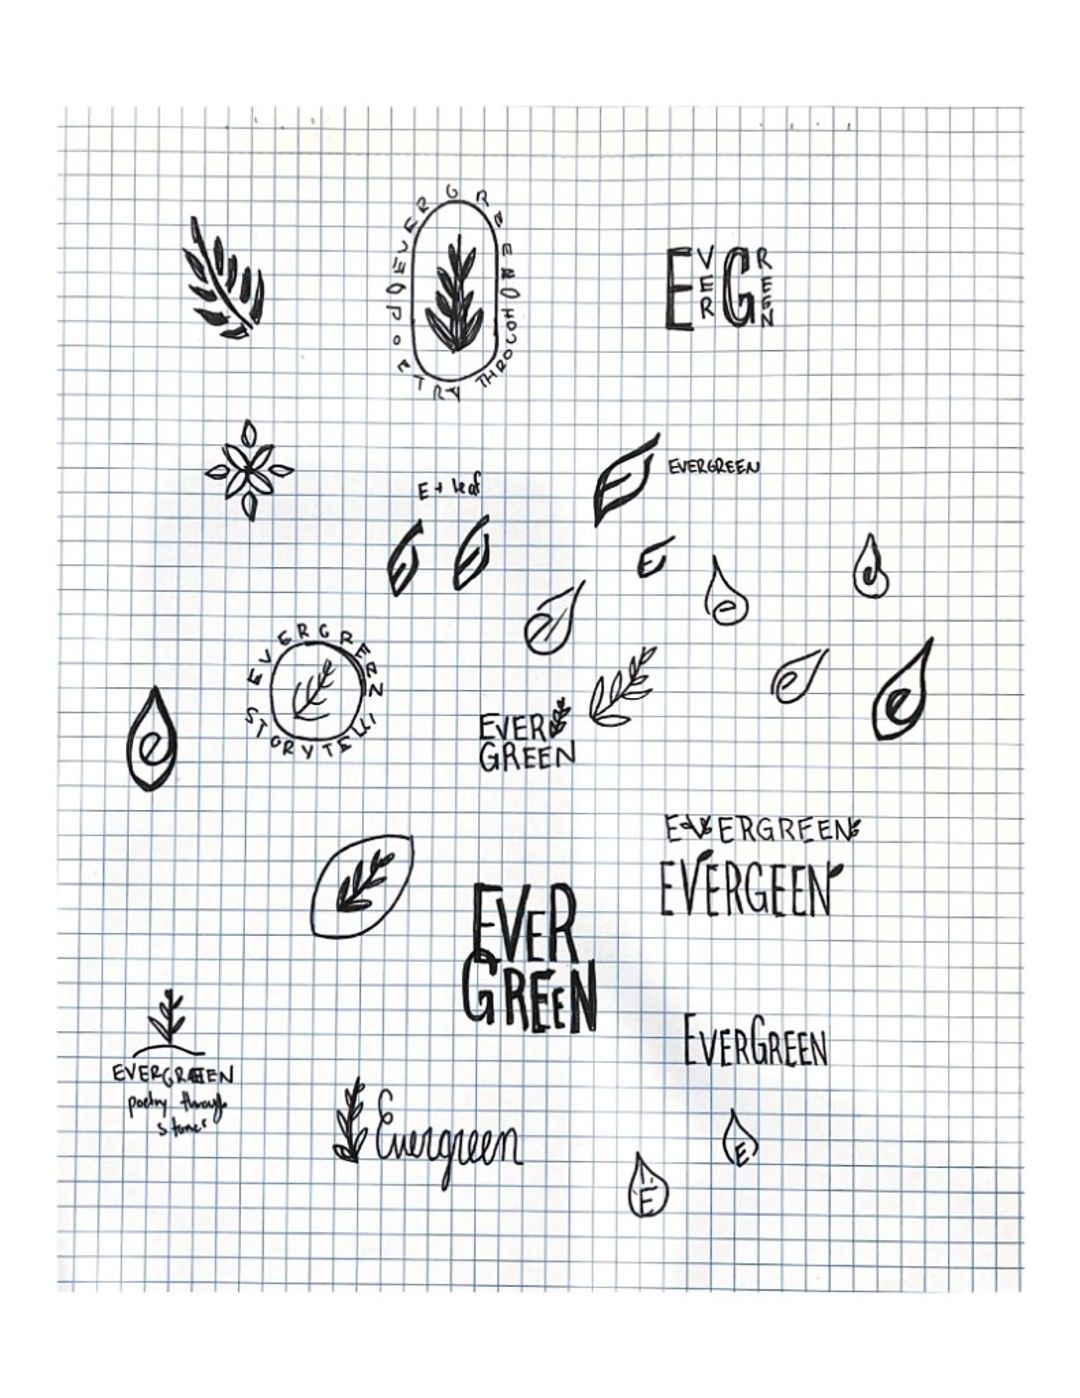 EVERGREEN
POETRY THROUGH
E VER G REEN
E + leaf
EVERGREEN
E
E
E
E
e
e
e
e
e
e
EVERGREEN
STORYTELLI
EVER
GREEN
EVERGREEN
EVERGEEN
EVER
GREEN
EVERGREEN
EVERGREEN
poetry through
Evergreen
E
E